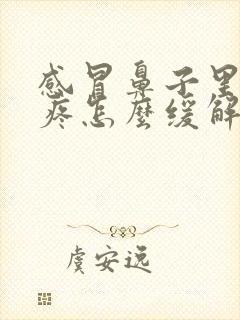 感冒鼻子里
疼怎麽缓解
虞安远